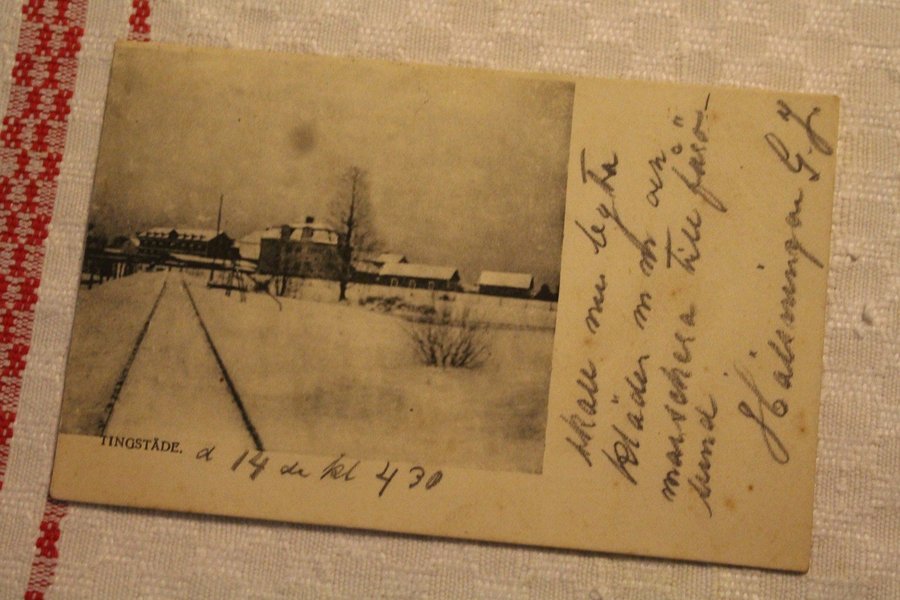 TINGSTÄDE.
d 14 de kl 4 30
skall nu byta
kläder m m och
marschera till fårö-
sund
Hälsningar G. J.